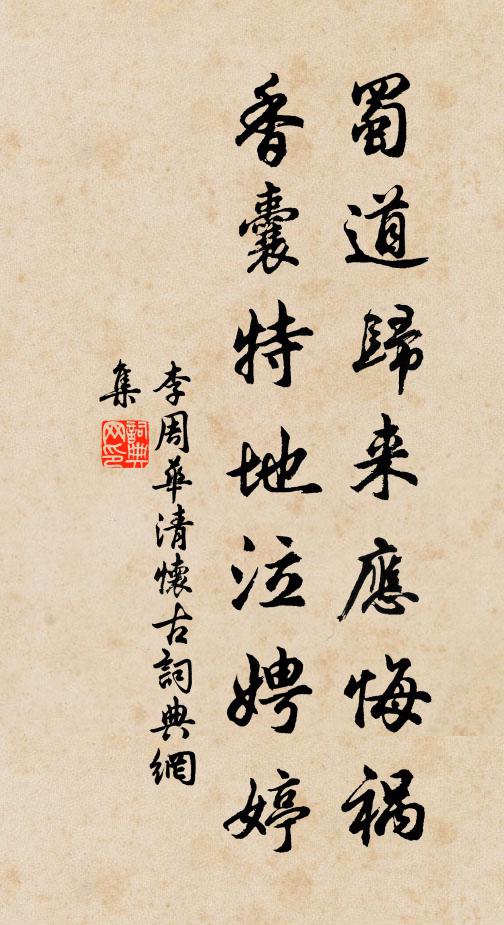 蜀道歸来應悔禍
香囊特地泣娉婷
李周華清懷古詞典網
集
詞典
网印